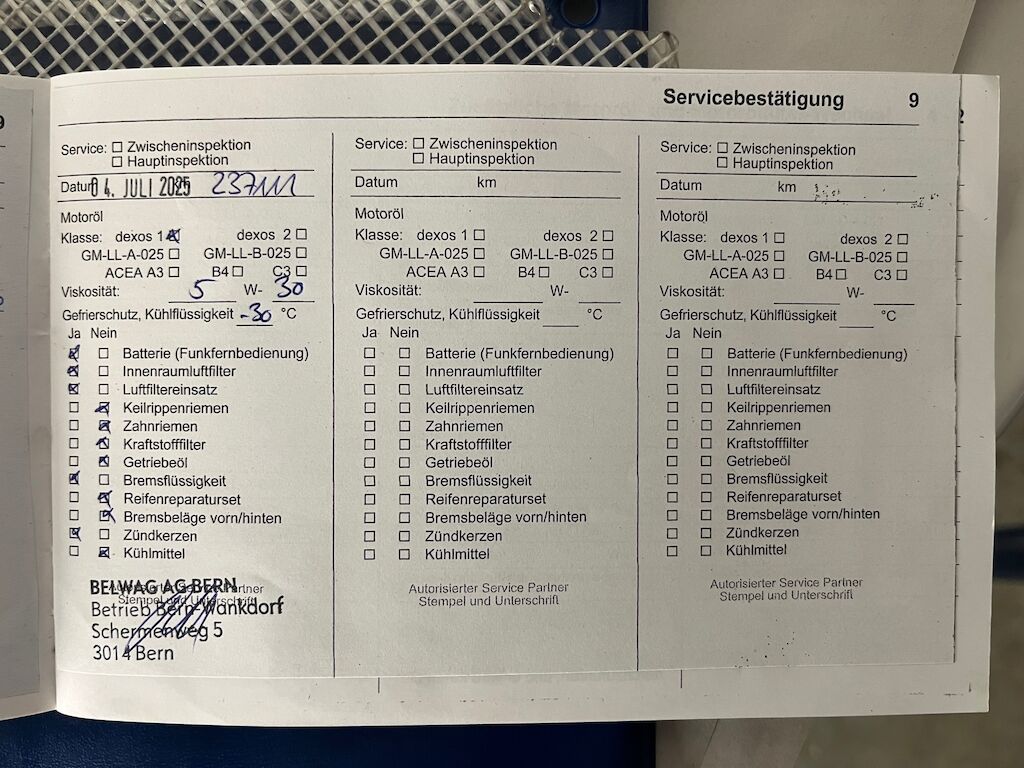 Servicebestätigung 9
Service: ☐ Zwischeninspektion
☐ Hauptinspektion
Datum 04. JULI 2025 237111
Motoröl
Klasse: dexos 1 ☒ dexos 2 ☐
GM-LL-A-025 ☐ GM-LL-B-025 ☐
ACEA A3 ☐ B4 ☐ C3 ☐
Viskosität: 5 W- 30
Gefrierschutz, Kühlflüssigkeit -30 °C
Ja Nein
☒ ☐ Batterie (Funkfernbedienung)
☒ ☐ Innenraumluftfilter
☒ ☐ Luftfiltereinsatz
☐ ☒ Keilrippenriemen
☐ ☒ Zahnriemen
☐ ☒ Kraftstofffilter
☐ ☒ Getriebeöl
☒ ☐ Bremsflüssigkeit
☐ ☒ Reifenreparaturset
☐ ☒ Bremsbeläge vorn/hinten
☒ ☐ Zündkerzen
☐ ☒ Kühlmittel
Autorisierter Service Partner
Stempel und Unterschrift
BELWAG AG BERN
Betrieb Bern-Wankdorf
Schermenweg 5
3014 Bern
Service: ☐ Zwischeninspektion
☐ Hauptinspektion
Datum km
Motoröl
Klasse: dexos 1 ☐ dexos 2 ☐
GM-LL-A-025 ☐ GM-LL-B-025 ☐
ACEA A3 ☐ B4 ☐ C3 ☐
Viskosität: W-
Gefrierschutz, Kühlflüssigkeit °C
Ja Nein
☐ ☐ Batterie (Funkfernbedienung)
☐ ☐ Innenraumluftfilter
☐ ☐ Luftfiltereinsatz
☐ ☐ Keilrippenriemen
☐ ☐ Zahnriemen
☐ ☐ Kraftstofffilter
☐ ☐ Getriebeöl
☐ ☐ Bremsflüssigkeit
☐ ☐ Reifenreparaturset
☐ ☐ Bremsbeläge vorn/hinten
☐ ☐ Zündkerzen
☐ ☐ Kühlmittel
Autorisierter Service Partner
Stempel und Unterschrift
Service: ☐ Zwischeninspektion
☐ Hauptinspektion
Datum km
Motoröl
Klasse: dexos 1 ☐ dexos 2 ☐
GM-LL-A-025 ☐ GM-LL-B-025 ☐
ACEA A3 ☐ B4 ☐ C3 ☐
Viskosität: W-
Gefrierschutz, Kühlflüssigkeit °C
Ja Nein
☐ ☐ Batterie (Funkfernbedienung)
☐ ☐ Innenraumluftfilter
☐ ☐ Luftfiltereinsatz
☐ ☐ Keilrippenriemen
☐ ☐ Zahnriemen
☐ ☐ Kraftstofffilter
☐ ☐ Getriebeöl
☐ ☐ Bremsflüssigkeit
☐ ☐ Reifenreparaturset
☐ ☐ Bremsbeläge vorn/hinten
☐ ☐ Zündkerzen
☐ ☐ Kühlmittel
Autorisierter Service Partner
Stempel und Unterschrift